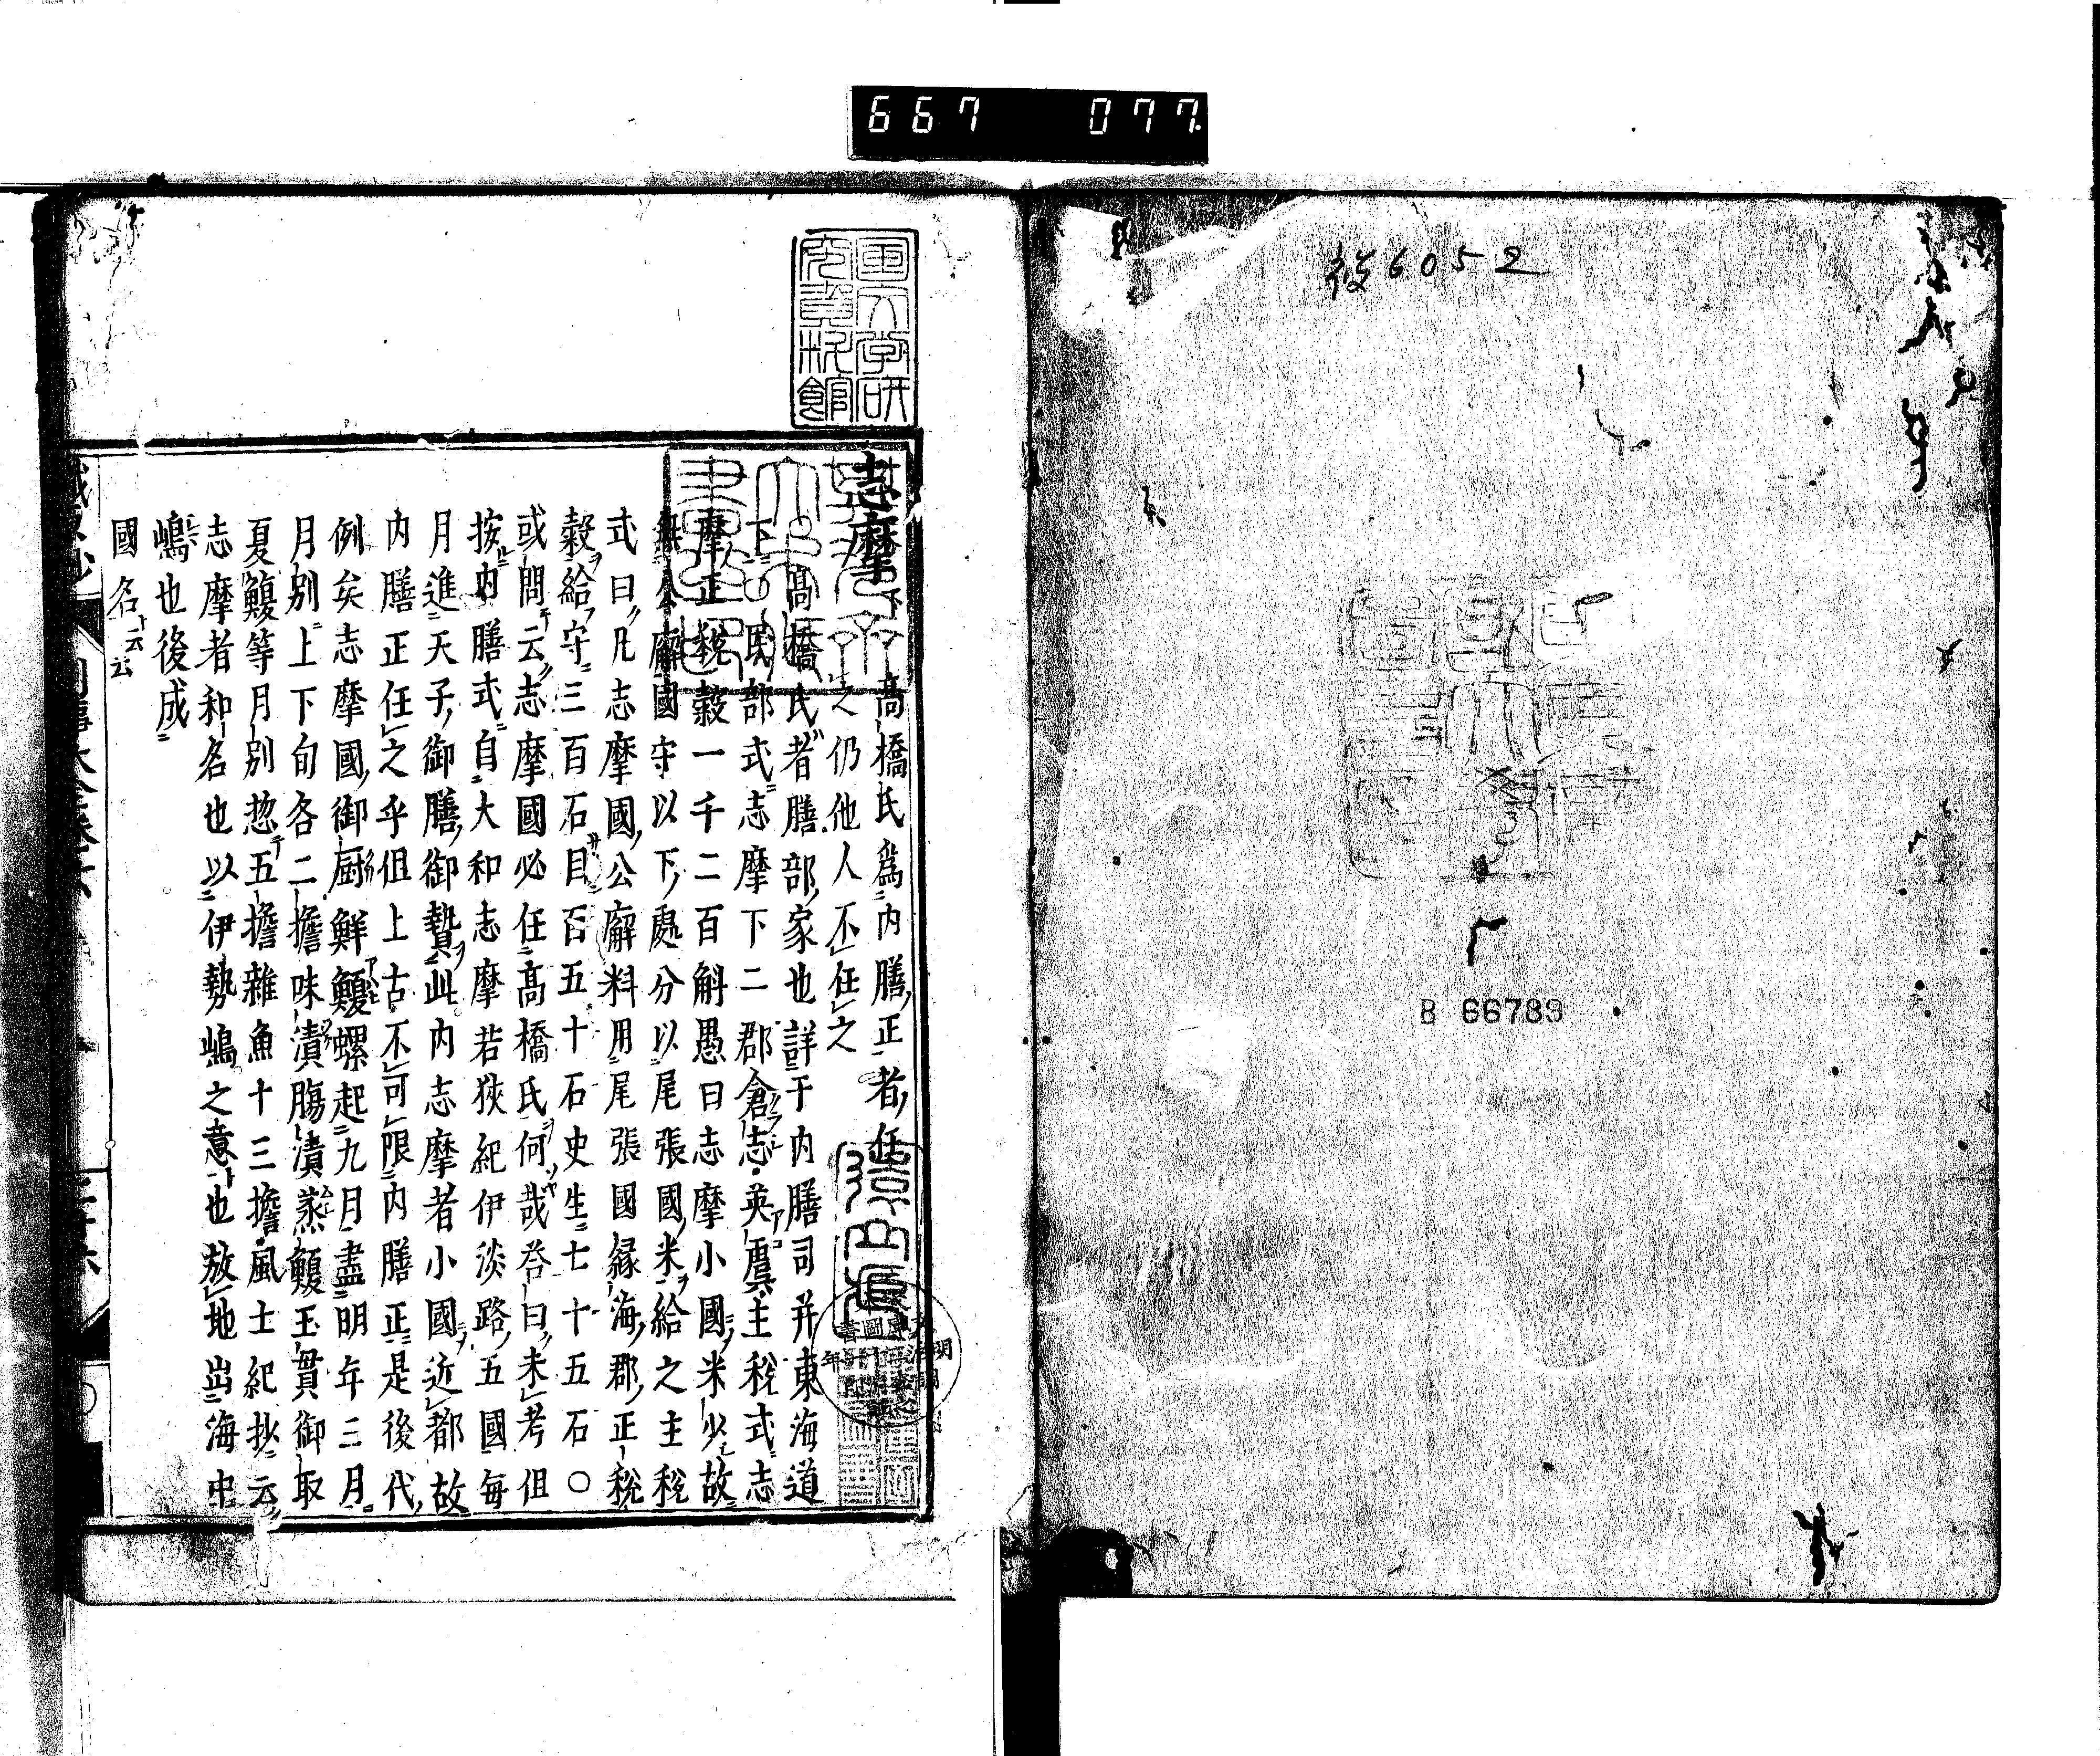 667 077
後6052
B 66789
国文学研
究資料館
志摩 髙橋氏爲内膳正者任
之仍他人不任之
髙橋氏者膳部家也詳于内膳司并東海道
下 民部式志摩下二郡倉志英虞主税式志
摩正税穀一千二百斛愚曰志摩小國米少故
無公廨國守以下處分以尾張國米給之主税
式曰凡志摩國公廨料用尾張國縁海郡正税
穀給守三百石目百五十石史生七十五石〇
或問云志摩國必任髙橋氏何哉答曰未考但
按内膳式自大和志摩若狹紀伊淡路五國毎
月進天子御膳御贄此内志摩者小國近都故
内膳正任之乎但上古不可限内膳正是後代
例矣志摩國御厨鮮鰒螺起九月盡明年三月
月別上下旬各二擔味漬腸漬蒸鰒玉貫御取
夏鰒等月別惣五擔雜魚十三擔風土紀抄云
志摩者和名也以伊勢嶋之意也放地出海中
嶋也後成
國名云云